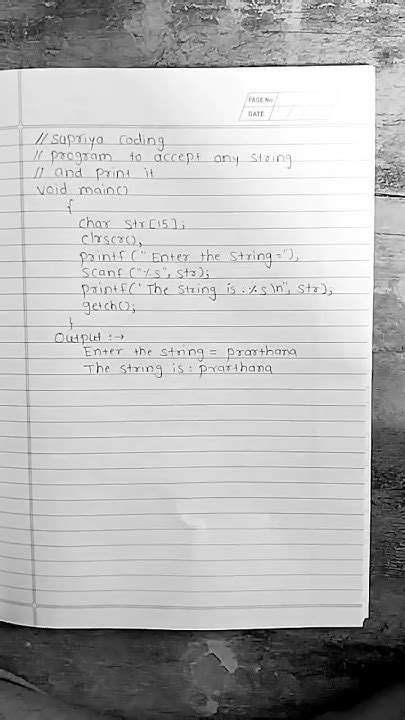 PAGE No.
DATE
// Supriya Coding
// program to accept any string
// and print it
void main()
{
char str[15];
clrscr(),
printf("Enter the string=');
scanf("%s", str);
printf("The string is:%s\n", str);
getch();
}
Output :→
Enter the string = prarthana
The string is: prarthana